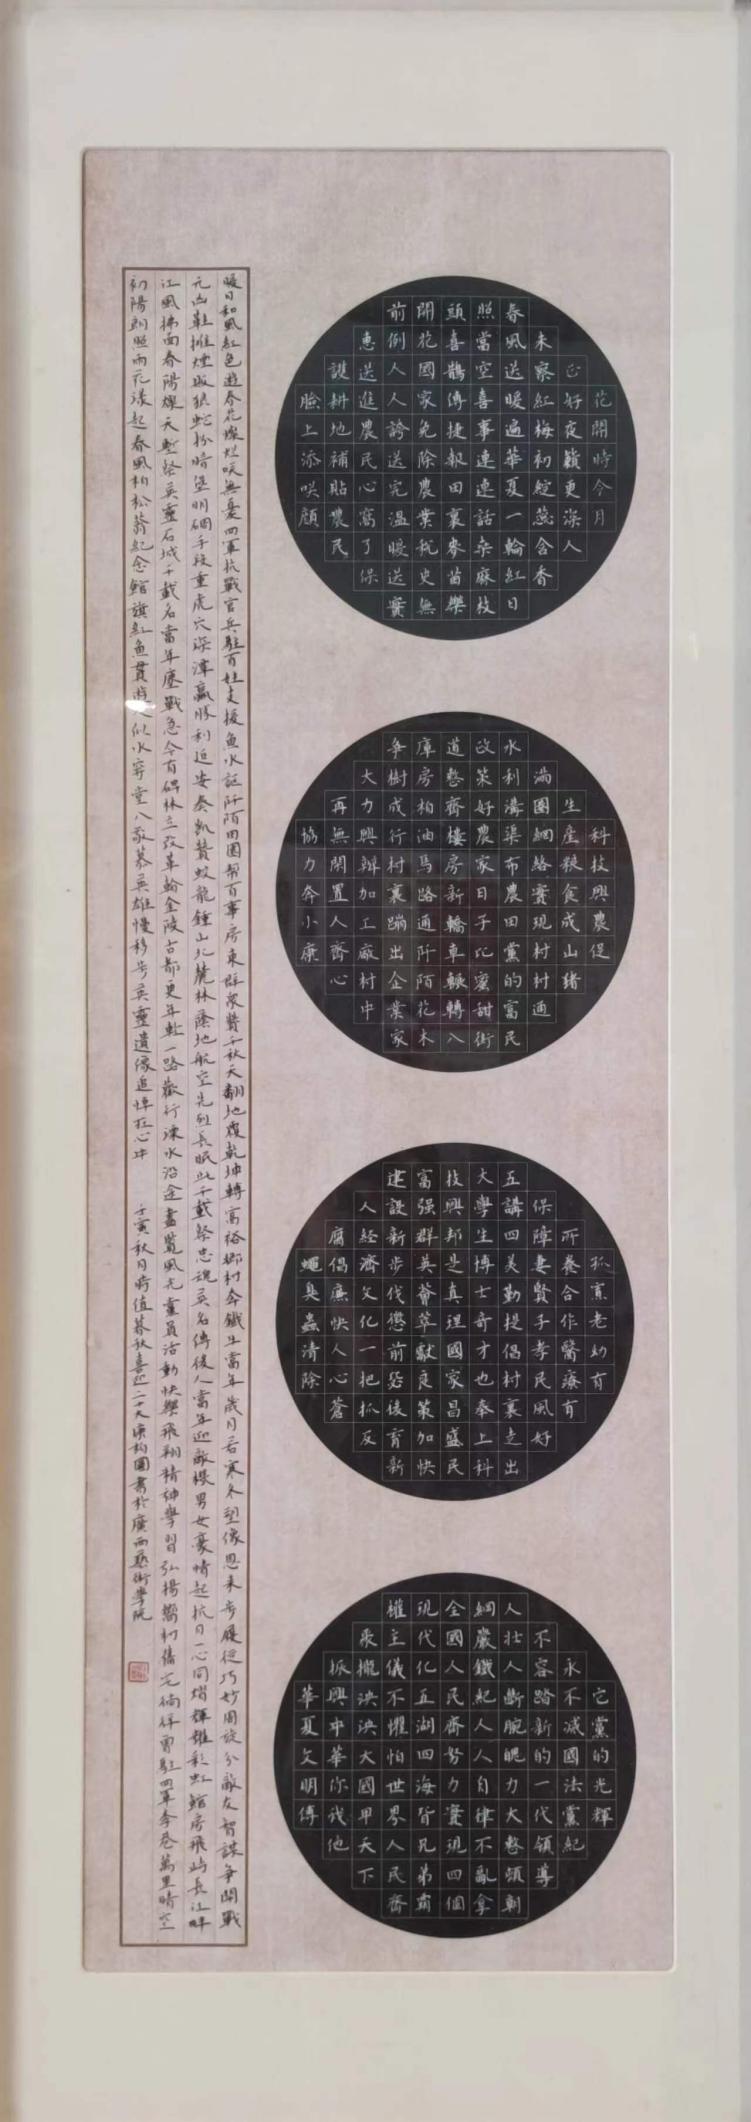 花開時今月
正好夜籟更深人
未察紅梅初綻蕊含香
春風送暖遍華夏一輪紅日
照當空喜事連連話桑麻枝
頭喜鵲傳捷報田裏麥苗樂
開花國家免除農業稅史無
前例人人誇送完溫暖送實
惠送進農民心窩了保
護耕地補貼農民
臉上添咲顔
科技興農促
生産粮食成山緒
滿園網絡實現村村通
水利溝渠布農田黨的富民
政策好農家日子比蜜甜街
道整齊樓房新轎車輾轉入
庫房柏油馬路通阡陌花木
争樹成行村裏蹦出企業家
大力興辦加工廠村中
再無閑置人齊心
協力奔小康
孤寡老幼有
所養合作醫療有
保障妻賢子孝民風好
五講四美勤提倡村裏走出
大學生博士奇才也奉上科
技興邦是真理國家昌盛民
富强群英薈萃獻良策加快
建設新步伐懲前毖後育新
人經濟文化一把抓反
腐倡廉快人心蒼
蠅臭蟲清除
它黨的光輝
永不減國法黨紀
不容踏新的一代領導
人壯人斷腕魄力大整頓朝
綱嚴鐵紀人人自律不亂拿
全國人民齊努力實現四個
現代化五湖四海皆兄弟霸
權主儀不懼怕世界人民齊
聚攏泱泱大國甲天下
振興中華你我他
華夏文明傳
暖日和風紅色遊春花燦爛咲無憂四軍抗戰官兵駐百姓支援魚水誼阡陌田園幫百事房東群衆贊千秋天翻地覆乾坤轉富裕鄉村奔鐵牛當年歲月若寒冬塑像思來步履從巧妙周旋分敵友智謀争開戰
元凶鞋攤煙販狼蛇扮暗堡明碉手段重虎穴深潭贏勝利延安奏凱贊蛟龍鍾山北麓林蔭地航空先烈長眠此千載祭忠魂英名傳後人當年迎敵機男女豪情起抗日一心同熠輝耀彩虹館房飛峙長江畔
江風拂面春陽燦天塹祭英靈石城千載名當年鏖戰急今有碑林立改革輪金陵古都更年輕一路歡行溧水沿途盡覽風光黨員活動快樂飛翔精神學習弘揚鄉村舊宅徜徉曾駐四軍李巷萬里晴空
初陽朗照雨花漾起春風柏松蓊紀念館旗紅魚貫遊人似水穿堂入敬慕英雄慢移步英靈遺像追悼在心中 壬寅秋月時值暮秋喜迎二十大 書於廣西藝術學院